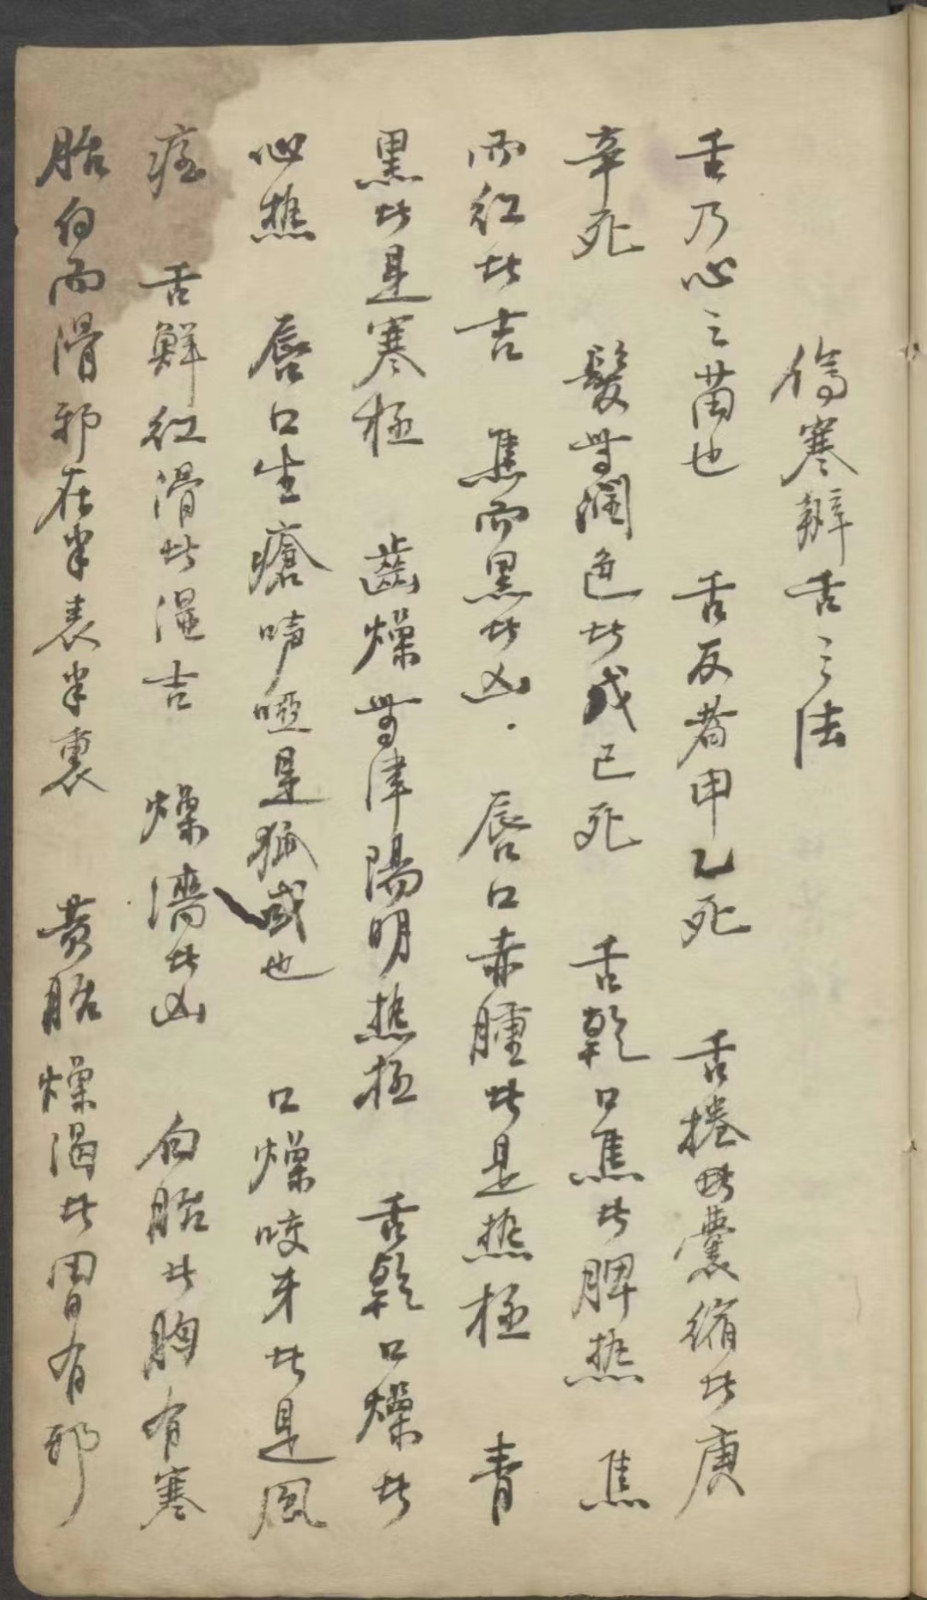 傷寒辨舌之法
舌乃心之苗也 舌反者甲乙死 舌捲此囊縮此庚
辛死 髮无潤色此戊己死 舌乾口焦此脾热 焦
而红此吉 焦而黑此凶 唇口赤腫此是热極 青
黑此是寒極 齒燥无津陽明热極 舌乾口燥此
心热 唇口生瘡啞是狐惑也 口燥咬牙此是風
痓 舌鮮红滑此湿吉 燥濇此凶 白胎此胸有寒
胎白而滑邪在半表半裏 黄胎燥渴此胃有邪